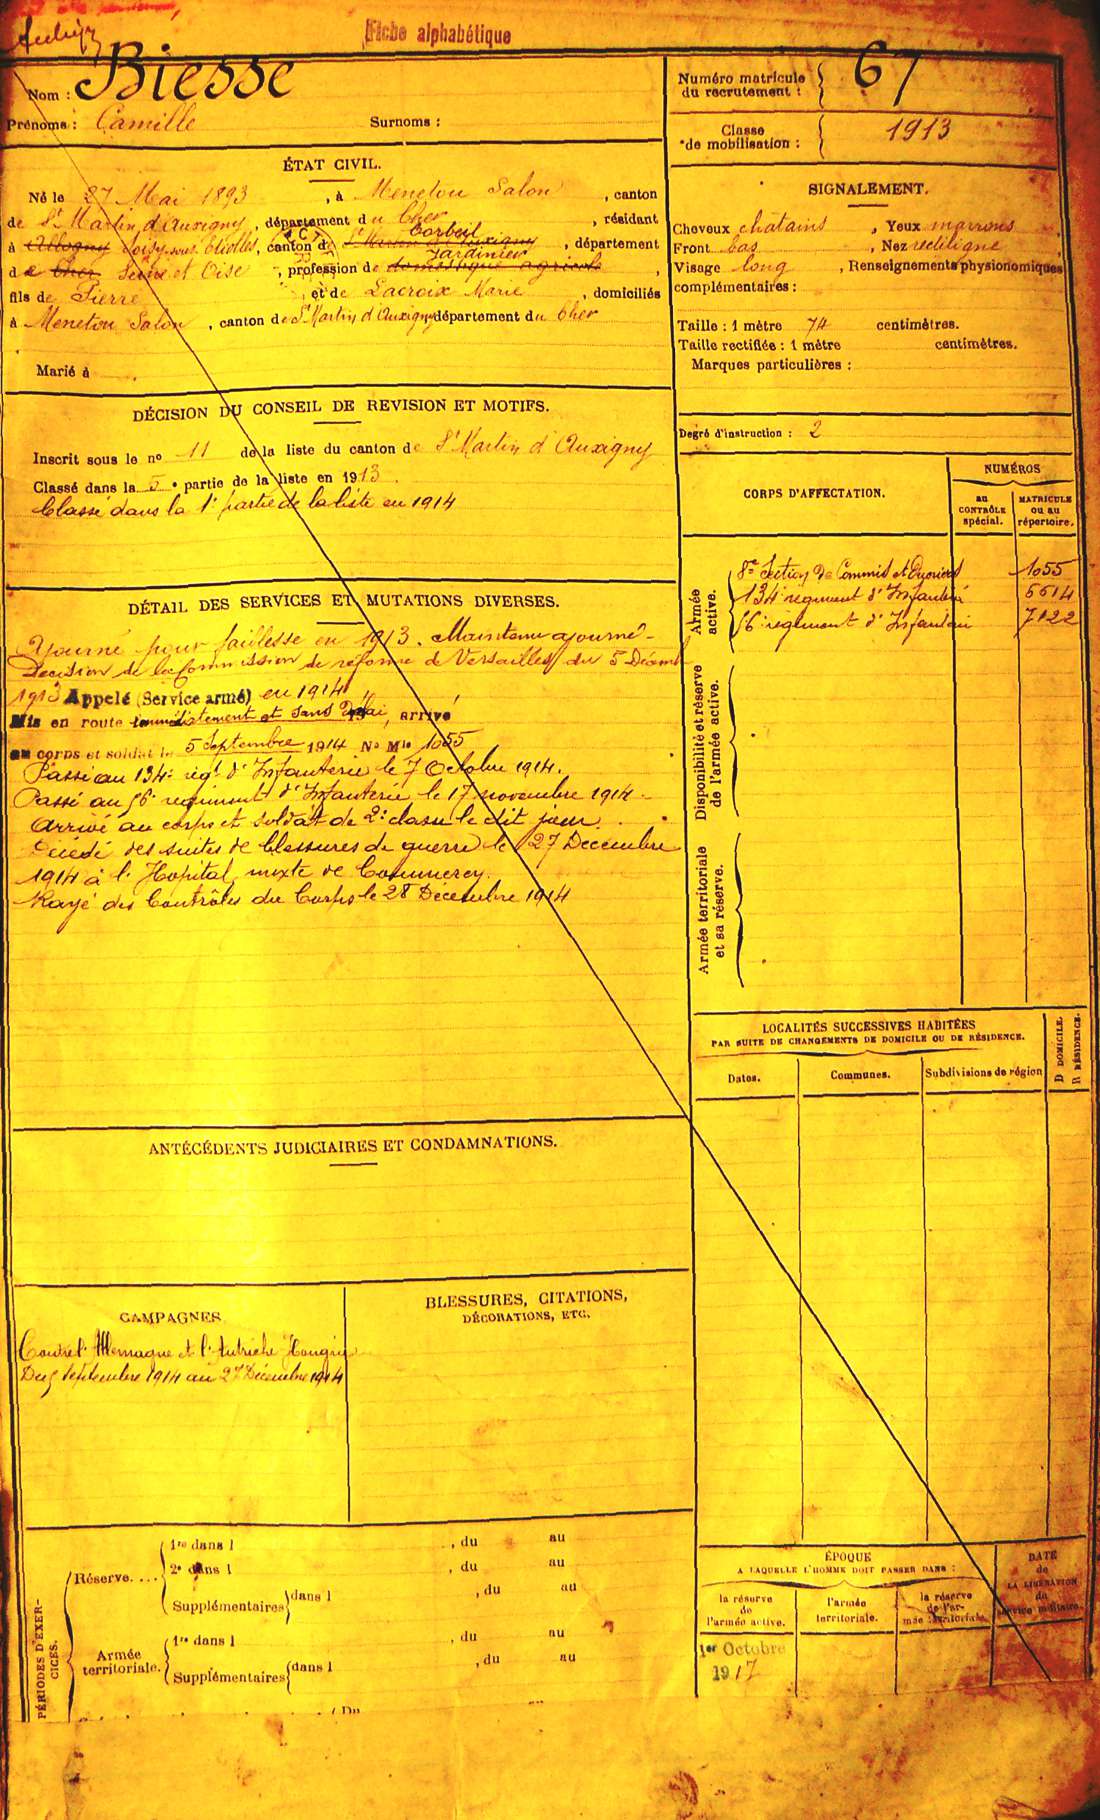 Fiche alphabétique
Nom : Biesse
Prénoms : Camille Surnoms :
Numéro matricule du recrutement : 67
Classe de mobilisation : 1913
ÉTAT CIVIL.
Né le 27 Mai 1893, à Menetou Salon, canton
de St Martin d'Auxigny, département du Cher, résidant
Corbeil
à Allogny Soisy-sous-Etiolles, canton de St Martin d'Auxigny, département
Jardinier
de Cher Seine et Oise, profession de domestique agricole,
fils de Pierre et de Lacroix Marie, domiciliés
à Menetou Salon, canton de St Martin d'Auxigny département du Cher
Marié à
SIGNALEMENT.
Cheveux chatains, Yeux marrons,
Front bas, Nez rectiligne,
Visage long, Renseignements physionomiques
complémentaires :
Taille : 1 mètre 74 centimètres.
Taille rectifiée : 1 mètre centimètres.
Marques particulières :
Degré d'instruction : 2
DÉCISION DU CONSEIL DE REVISION ET MOTIFS.
Inscrit sous le no 11 de la liste du canton de St Martin d'Auxigny
Classé dans la 5e partie de la liste en 1913.
Classé dans la 1e partie de la liste en 1914
DÉTAIL DES SERVICES ET MUTATIONS DIVERSES.
Ajourné pour faiblesse en 1913. Maintenu ajourné
Décision de la Commission de réforme de Versailles du 5 Décemb
1913 Appelé (Service armé) en 1914
Mis en route immédiatement et sans délai, arrivé
au corps et soldat le 5 Septembre 1914 No Mle 1055
Passé au 134e régt d'Infanterie le 7 Octobre 1914.
Passé au 56e régiment d'Infanterie le 17 novembre 1914
Arrivé au corps et soldat de 2e classe le dit jour.
Décédé des suites de blessures de guerre le 27 Décembre
1914 à l'Hopital mixte de Commercy.
Rayé des Contrôles du Corps le 28 Décembre 1914
CORPS D'AFFECTATION.
NUMÉROS
au CONTRÔLE spécial.
MATRICULE ou au répertoire.
Armée active.
8e Section de Commis et Ouvriers 1055
134e régiment d'Infanterie 6614
56e régiment d'Infanterie 7122
Disponibilité et réserve de l'armée active.
Armée territoriale et sa réserve.
LOCALITÉS SUCCESSIVES HABITÉES
PAR SUITE DE CHANGEMENTS DE DOMICILE OU DE RÉSIDENCE.
Dates. Communes. Subdivisions de région
D DOMICILE.
R RÉSIDENCE.
ANTÉCÉDENTS JUDICIAIRES ET CONDAMNATIONS.
CAMPAGNES
Contre l'Allemagne et l'Autriche Hongrie
Du 5 Septembre 1914 au 27 Décembre 1914
BLESSURES, CITATIONS,
DÉCORATIONS, ETC.
PÉRIODES D'EXERCICES.
Réserve....
1re dans l , du au
2e dans l , du au
Supplémentaires dans l , du au
Armée territoriale.
1re dans l , du au
Supplémentaires dans l , du au
ÉPOQUE
A LAQUELLE L'HOMME DOIT PASSER DANS :
la réserve de l'armée active.
l'armée territoriale.
la réserve de l'armée territoriale.
DATE de LA LIBÉRATION du service militaire.
1er Octobre
1917